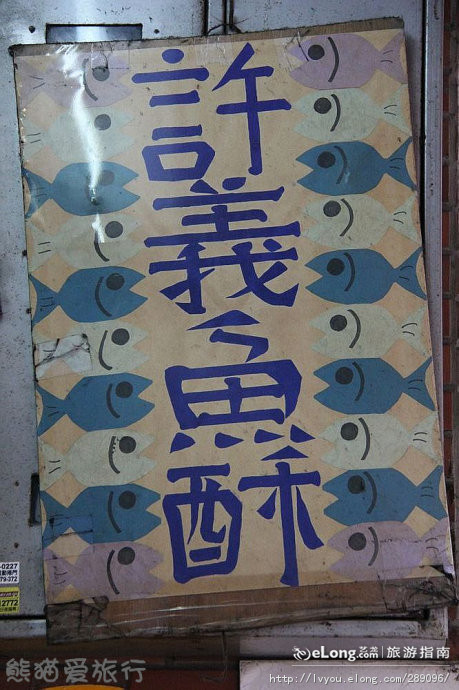 許義魚酥
-0227
79-072
2772
熊猫爱旅行
eLong艺龙|旅游指南
http://lvyou.elong.com/289096/